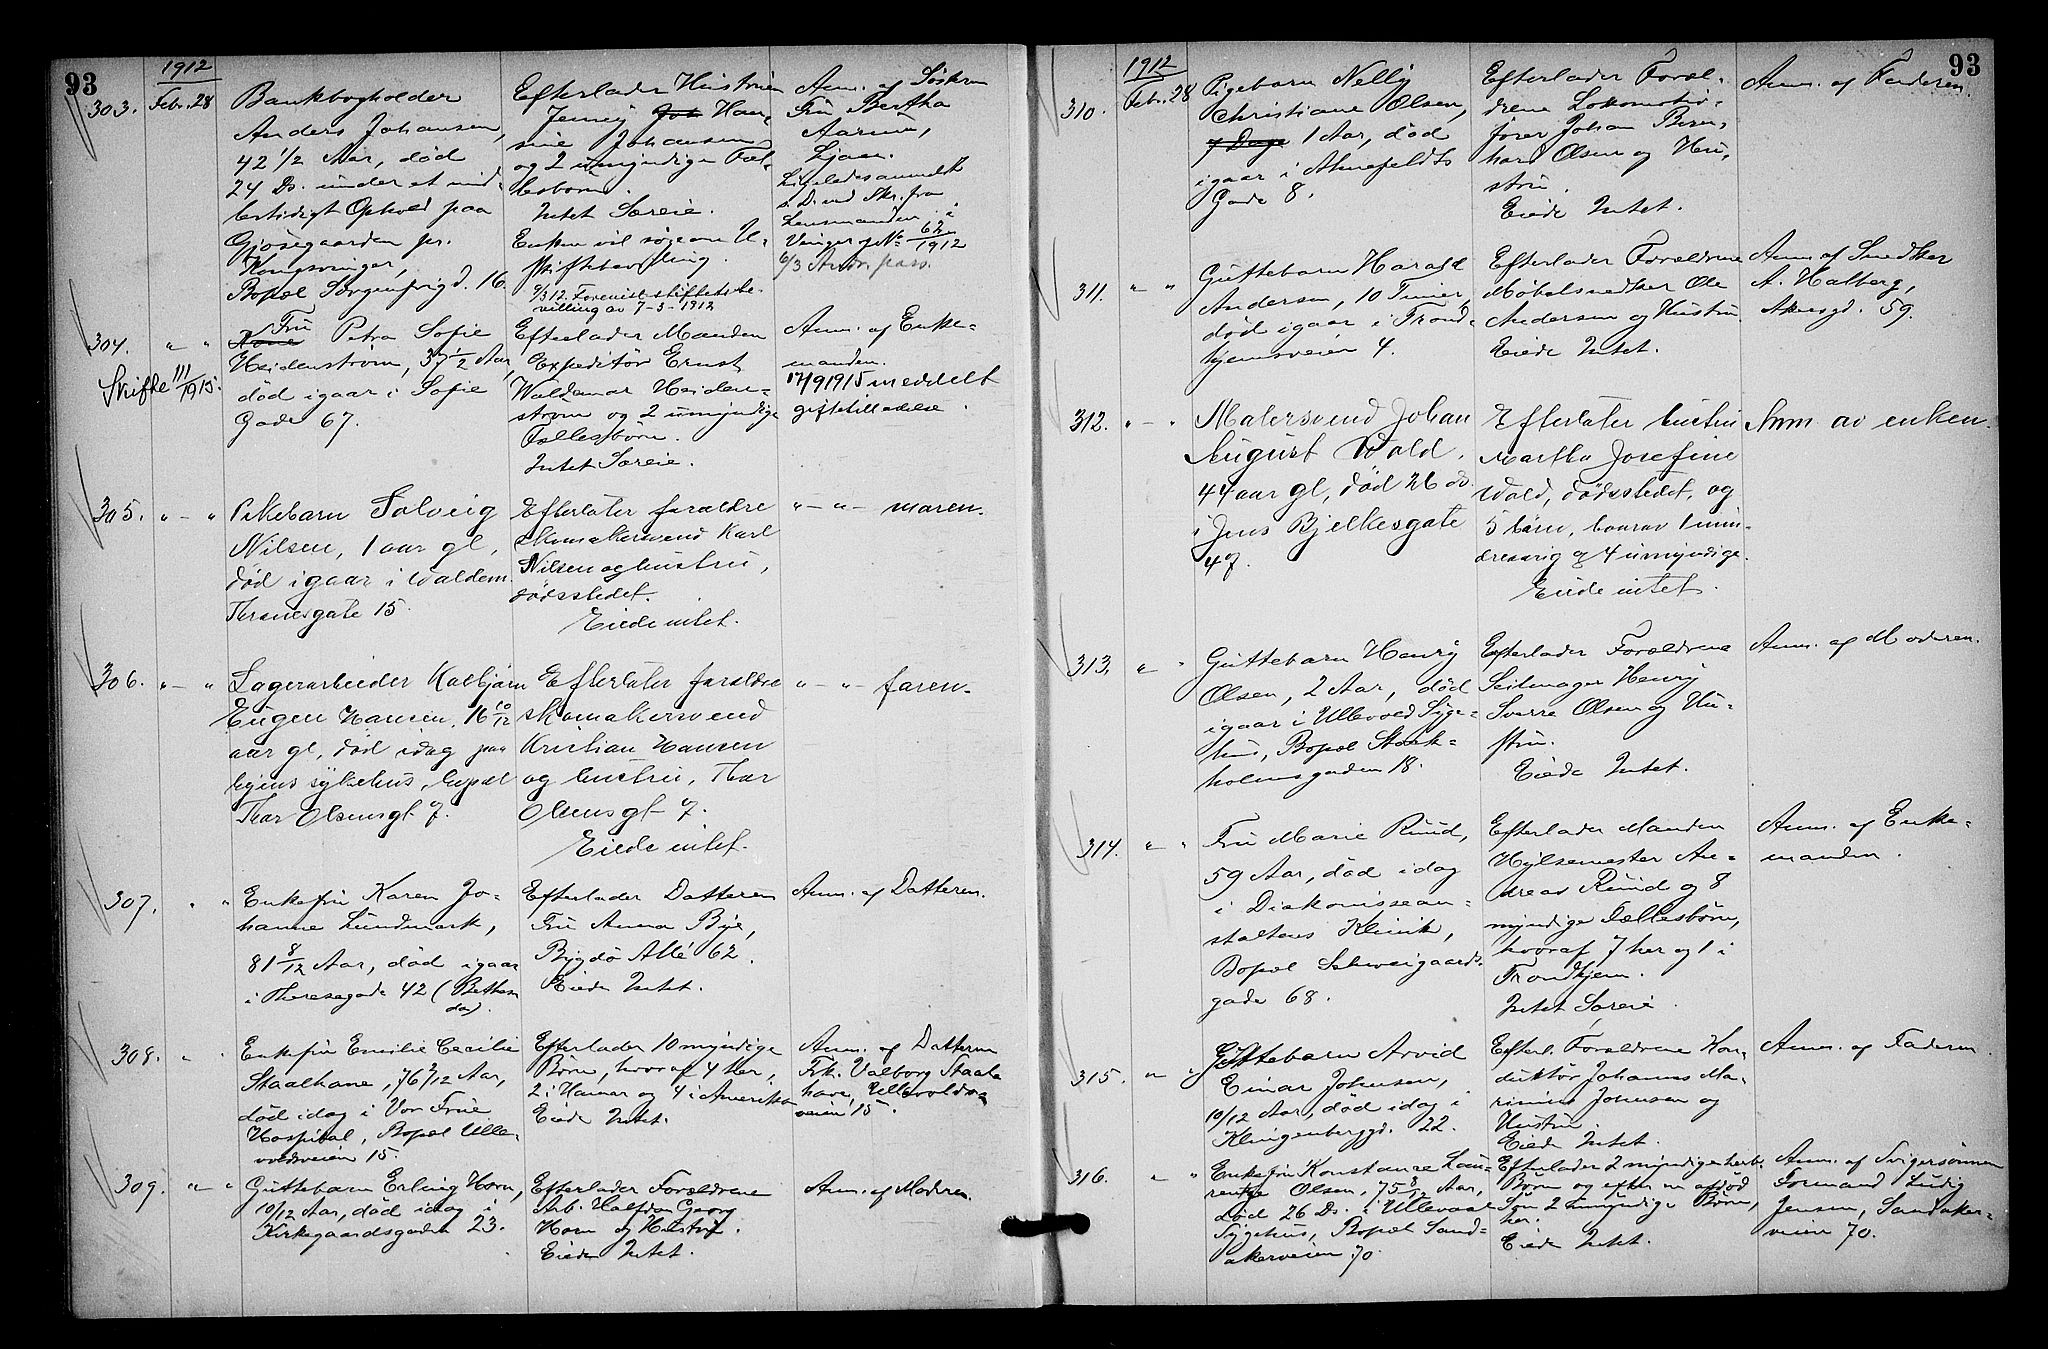 93
1912
303.
Febr. 28
Bankbogholder
Anders Johansen,
42 1/2 Aar, død
24 Ds. under et mid-
lertidigt Ophold paa
Gjøsegaarden pr.
Kongsvinger,
Bopæl Sorgenfrigd. 16.
Efterlader Hustruen
Jenny Joh Han-
sine Johansen
og 2 umyndige Fæl-
lesbørn.
Intet Særeie.
Enken vil søge om U-
skiftebevilling.
Anm. af Søsteren
Fru Bertha
Ljan.
Ligeledes anmeldt
Lensmanden i
Vinger
304.
" "
Skifte 111/1915.
Fru Petra Sofie
Heidenstrøm, 37 1/2 Aar,
død igaar i Sofie
Gade 67.
Efterlader Manden
Expeditør Ernst
Waldemar Heiden-
strøm og 2 umyndige
Fællesbørn.
Intet Særeie.
Anm. af Enke-
manden.
17/9 1915 meddelt
giftetilladelse.
305.
" — "
Pikebarn Solveig
Nilsen, 1 aar gl,
død igaar i Waldem.
Thranesgate 15.
Efterlater forældre
skomakersvend Karl
Nilsen og hustru,
dødsstedet.
Eiede intet.
" — " — moren.
306.
" — "
Lagerarbeider Kolbjørn
Eugen Hansen, 16 10/12
aar gl, død idag paa
byens sykehus, bopæl
Thor Olsensgt 7.
Efterlater forældre
skomakersvend
Kristian Hansen
og hustru, Thor
Olsensgt 7.
Eiede intet.
" — " — faren.
307.
" "
Enkefru Karen Jo-
hanne Lundmark,
81 8/12 Aar, død igaar
i Theresegade 42 (Bethes-
da).
Efterlader Datteren
Fru Anna Bye,
Bygdø Allé 62.
Eiede Intet.
Anm. af Datteren.
308.
" "
Enkefru Emilie Cecilie
Staalhane, 76 2/12 Aar,
død idag i Vor Frue
Hospital, Bopæl Ulle-
voldsveien 15.
Efterlader 10 myndige
Børn, hvoraf 4 her,
2 i Hamar og 4 i Amerika
Eiede Intet.
Anm. af Datteren
Frk. Valborg Staal-
hane, Ullevolds-
veien 15.
309.
" "
Guttebarn Erling Horn,
10/12 Aar, død idag i
Kirkegaardsgaden 23.
Efterlader Forældrene
Arb. Halfdan Georg
Horn og Hustru.
Eiede Intet.
Anm. af Moderen.
93
1912
310.
Febr. 28
Pigebarn Nelly
Christiane Olsen,
7 Dage 1 Aar, død
igaar i Ahnefeldts
Gade 8.
Efterlader Foræl-
drene Lokomotiv-
fører Johan Bern-
hard Olsen og Hu-
stru.
Eiede Intet.
Anm. af Faderen.
311.
" "
Guttebarn Harald
Andersen, 10 Timer,
død igaar i Trond-
hjemsveien 4.
Efterlader Forældrene
Møbelsnedker Ole
Andersen og Hustru
Eiede Intet.
Anm. af Snedker
A. Halberg,
Akersgd. 59.
312.
" — "
Malersvend Johan
August Wold,
44 aar gl, død 26 ds.
i Jens Bjelkesgate
47.
Efterlater hustru
Martha Josefine
Wold, dødsstedet, og
5 børn, hvorav 1 min-
dreaarig og 4 umyndige.
Eiede intet.
Anm av enken.
313.
" "
Guttebarn Henry
Olsen, 2 Aar, død
igaar i Ullevold Syge-
hus, Bopæl Stock-
holmsgaden 18.
Efterlader Forældrene
Seilmager Henry
Sverre Olsen og Hu-
stru.
Eiede Intet.
Anm. af Moderen.
314.
" "
Fru Marie Ruud,
59 Aar, død idag
i Diakonissean-
staltens Klinik,
Bopæl Schweigaards-
gade 68.
Efterlader Manden
Hylsemester An-
dreas Ruud og 8
myndige Fællesbørn,
hvoraf 7 her og 1 i
Trondhjem.
Intet Særeie.
Anm. af Enke-
manden.
315.
" "
Guttebarn Arvid
Einar Johnsen,
10/12 Aar, død idag i
Klingenberggd. 22.
Efterl. Forældrene Kon-
duktør Johannes Ma-
rinius Johnsen og
Hustru.
Eiede Intet.
Anm. af Faderen.
316.
" "
Enkefru Konstance Lau-
rentze Olsen, 75 8/12 Aar,
død 26 Ds. i Ullevaal
Sygehus, Bopæl Sand-
akerveien 70.
Efterlader 2 myndige herb.
Børn og efter en afdød
Søn 2 umyndige Børn,
her.
Eiede Intet.
Anm. af Svigersønnen
Formand Ludv.
Jensen, Sandaker-
veien 70.